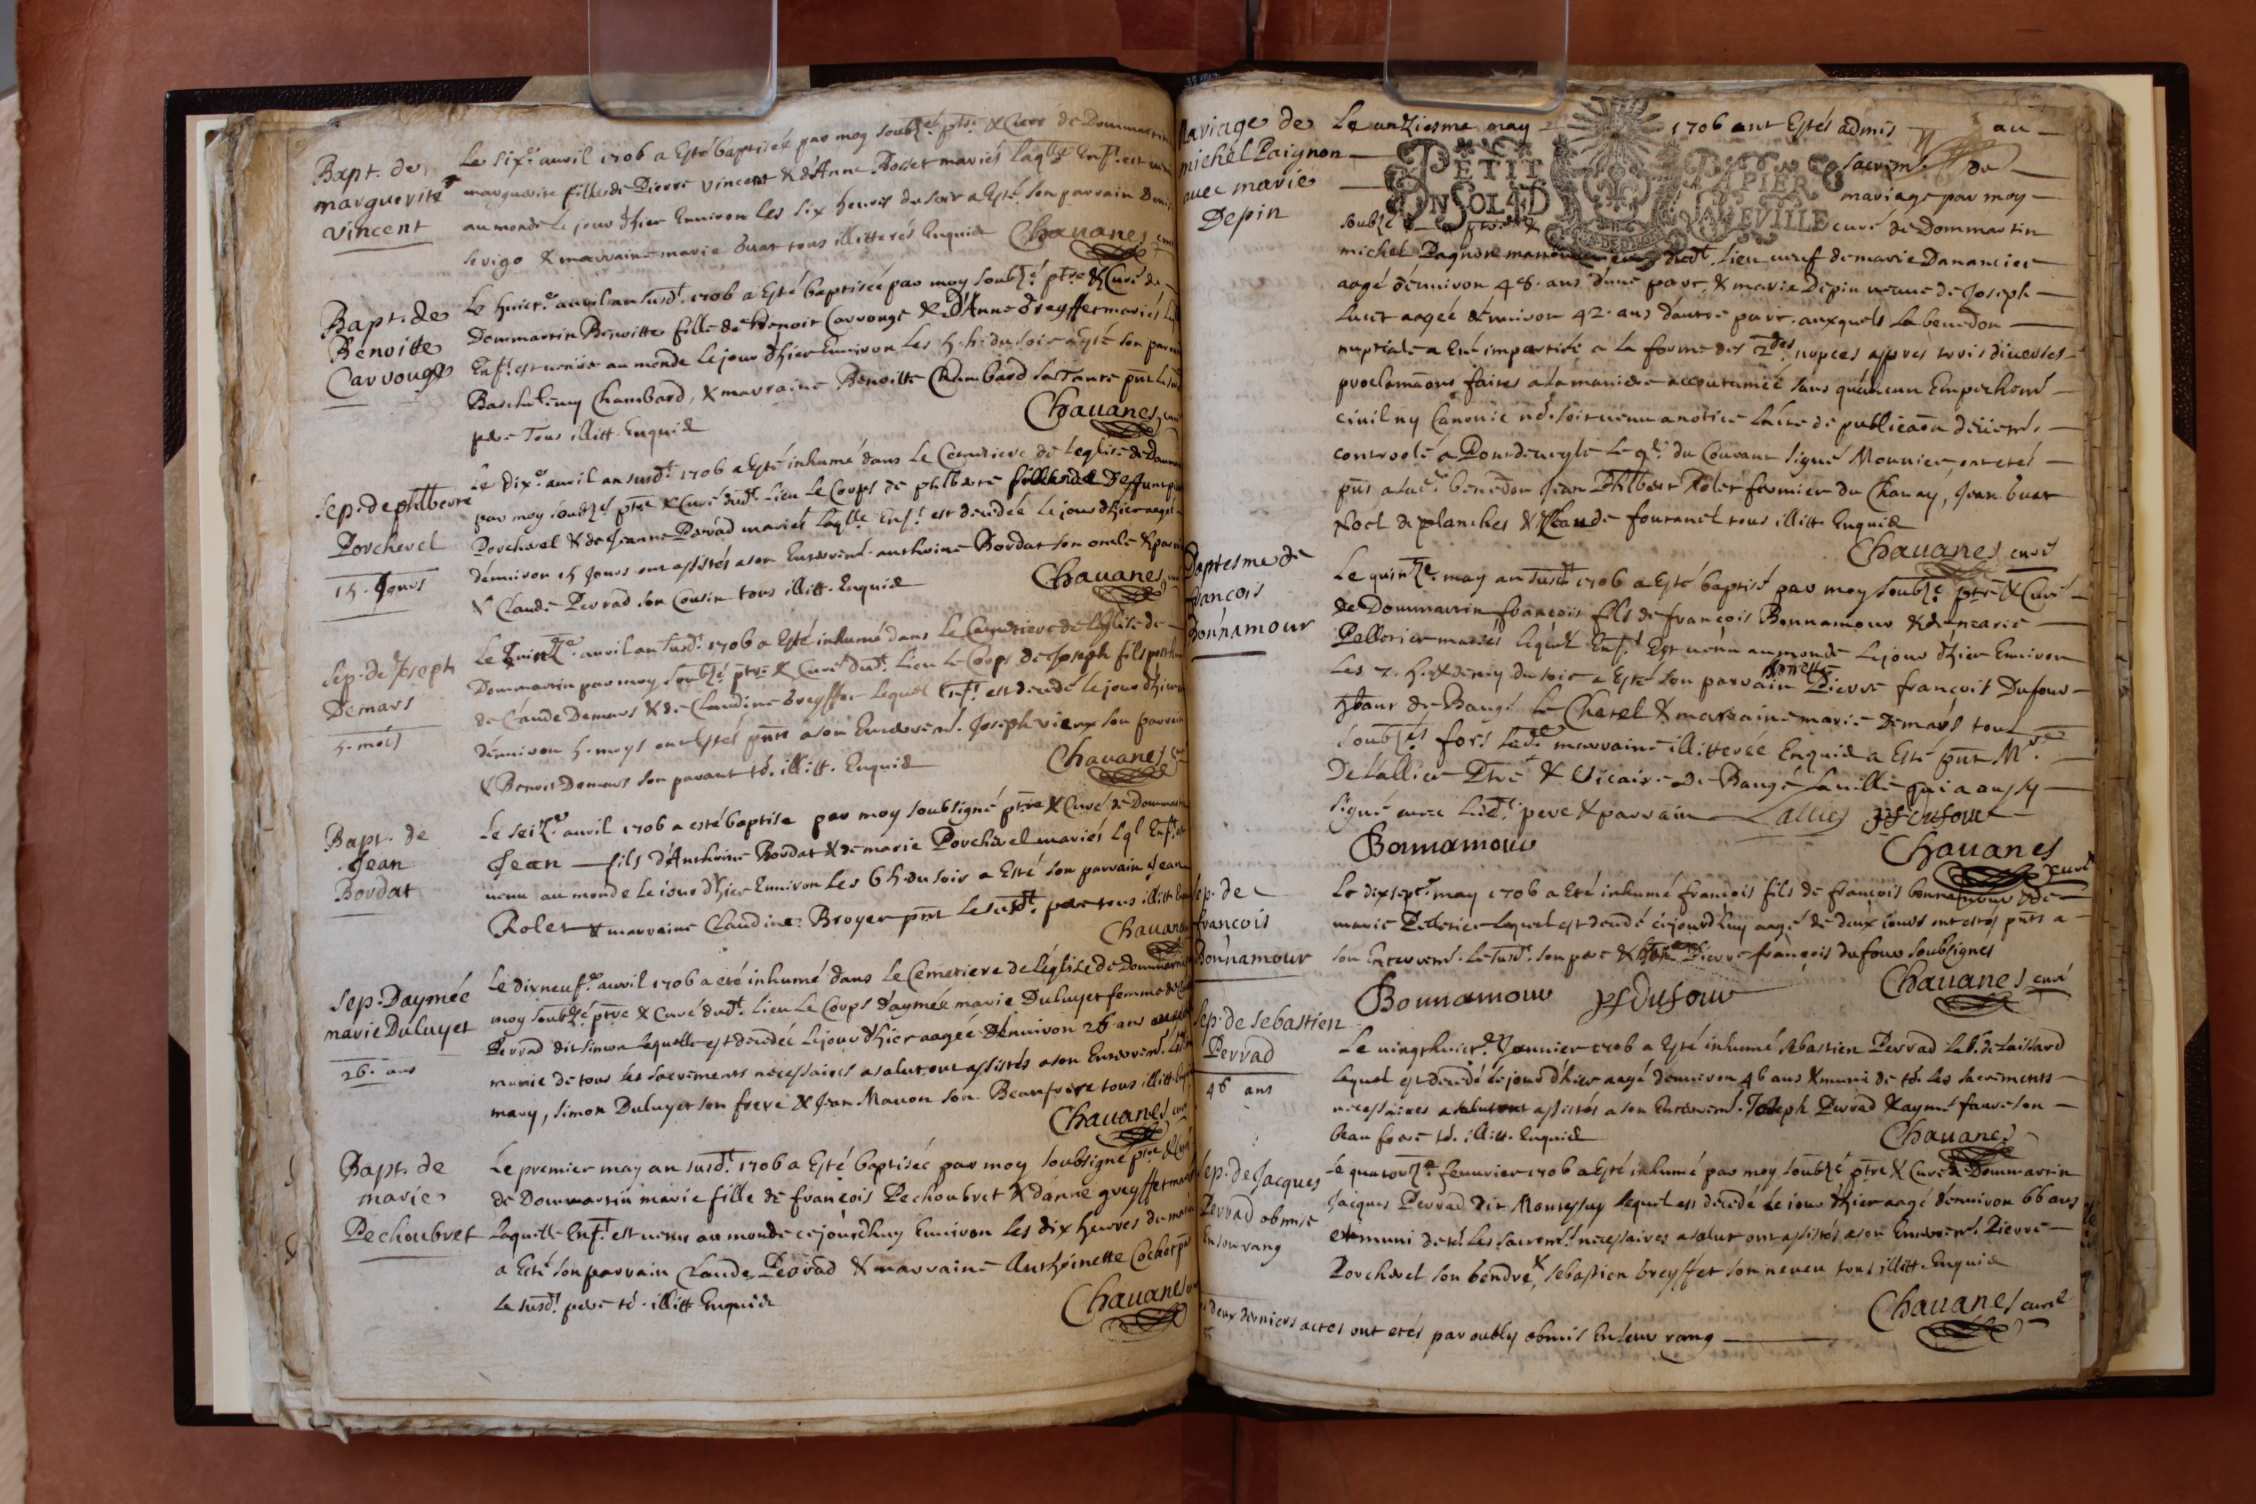 Bapt. de
marguerite
Vincent
Le six.e auril 1706 a Esté baptisée par moy soubz.é ptre & Curé de Dommartin
marguerite fille de Pierre Vincent & d'Anne Rolet mariés laq.lle Enf.t est
au monde le jour d'hier Enuiron les six heures du soir a Esté son parrain
& marraine marie buat tous illitterés Enquis
Chauanes curé
Bapt. de
Benoitte
Carrouge
Le huict.e auril an susd.t 1706 a Esté baptisée par moy soubz.é ptre & Curé de
Dommartin Benoitte fille de Benoit Carrouge & d'Anne Greyffet mariés
Enf.t est venue au monde le jour d'hier Enuiron les 5. h. du soir a esté son parrain
Barthelemy Chambard, & marraine Benoitte Chambard sa Tante pnt le
pere Tous illitt. Enquis
Chauanes curé
Sep. de philberte
Porcherel
15. Jours
Le dix.e auril an susd.t 1706 a Esté inhumé dans le Cemetiere de l'eglise de
par moy soubz.é ptre & Curé dud.t Lieu Le Corps de philberte
Porcherel & de Jeanne Perrad mariés laq.lle Enf.t est decedée le jour d'hier
d'enuiron 15 Jours ont assistés a son Enterrem.t anthoine Bordat son oncle
& Claude Perrad son Cousin tous illitt. Enquis
Chauanes curé
Sep. de Joseph
Demars
5. mois
Le quinz.e auril an susd.t 1706 a Esté inhumé dans le Cemetiere de l'Eglise de
Dommartin par moy soubz.é ptre & Curé dud.t Lieu le Corps de Joseph fils
de Claude Demars & de Claudine breyffet lequel Enf.t est decedé le jour d'hier
d'enuiron 5. moys ont Estés pnts a son Enterrem.t Joseph vieux son parrain
& Benoit Demars son parant t.s illitt. Enquis
Chauanes
Bapt. de
Jean
Bordat
Le seiz.e auril 1706 a esté baptisé par moy soubsigné ptre & Curé de
Jean fils d'Anthoine Bordat & de marie Porcherel mariés Lq.l Enf.t
venu au monde le jour d'hier Enuiron les 6 h. du soir a Esté son parrain Jean
Rolet & marraine Claudine Broyer pnt Le susd.t pere tous illitt.
Chauanes
Sep. D'aymée
marie Duluyet
26. ans
Le dixneuf.e auril 1706 a eté inhumé dans le Cemetiere de l'église de Dommartin
moy soubz.é ptre & Curé dud.t Lieu Le Corps d'aymée marie Duluyet femme de
Perrad dit simon laquelle est decedée le jour d'hier aagée d'enuiron 26 ans
munie de tous les sacrements necessaires a salut ont assistés a son Enterrem.t
mary, simon Duluyet son frere & Jean Mauon son Beaufrere tous illitt.
Chauanes curé
Bapt. de
marie
Pechoubret
Le premier may an susd.t 1706 a Esté baptisée par moy soubsigné ptre &
de Dommartin marie fille de françois Pechoubret & d'anne greyffet
Laquelle Enf.t est venue au monde cejourdhuy Enuiron les dix heures du
a Esté son parrain Claude Perrad & marraine Anthoinette Cochet
Le susd.t pere t.s illitt Enquis
Chauanes
Mariage de
michel Paignon
auec marie
Depin
Le unziesme may 1706 ont Estés admis au
sacrem.t de
mariage par moy
soubz.é ptre & curé de Dommartin
PETIT PAPIER
michel Pagnon dud.t Lieu ueuf de marie Danancier
aagé d'enuiron 48. ans d'une part, & marie Depin veuue de Joseph
aagée d'enuiron 42. ans d'autre part, auxquels la benedon
nuptiale a Eté impartie a la forme des 2.des nopces apres trois diuerses
proclamaons faites a la maniere accoutumée sans qu'aucun Empechem.t
ciuil ny Canonic soit venu a notice
controolé a Pontdeueyle Le 9.e du Courant signé Mounier, ont etés
pnts a lad.e benedon Jean Philbert Rolet fermier du Chanay, Jean buat
Noel deplanches & Claude fontanel tous illitt. Enquis
Chauanes curé
Baptesme de
françois
Bonnamour
Le quinz.e may an susd.t 1706 a Esté baptisé par moy soubz.é ptre & Curé
de Dommartin françois fils de françois Bonnamour & de marie
Pelletier mariés lequel Enf.t Est venu au monde le jour d'hier Enuiron
les 7. h. & demy du soir a Esté son parrain honeste Pierre françois Dufour
hbant de Baugé le Chatel & marraine marie Demars tous
soubz.és fors lad.e marraine illitterée Enquise a Esté pnt M.re
De Lallier Ptre & Vicaire de Baugé la uille qui a aussy
signé auec led.t pere & parrain Lallier pfdufour
Bonnamour
Chauanes curé
Sep. de
françois
Bonnamour
Le dixsept.e may 1706 a Eté inhumé françois fils de françois bonnamour & de
marie Peletier lequel est decedé cejourdhuy aagé de deux iours ont etés pnts a
son Enterrem.t le susd.t son pere & Pierre françois dufour soubsignés
Bonnamour pfdufour
Chauanes curé
Sep. de sebastien
Perrad
46 ans
Le uingthuict.e Januier 1706 a Esté inhumé sebastien Perrad Lab.
lequel est decedé le jour d'hier aagé d'enuiron 46 ans & muni de t.s les sacrements
necessaires a salut ont assistés a son Enterrem.t Joseph Perrad & aymé faure son
beau frere t.s illitt. Enquis
Chauanes
Sep. de Jacques
Perrad obmise
En son rang
Le quatorz.e feurier 1706 a Esté inhumé par moy soubz.é ptre & Curé de Dommartin
Jacques Perrad dit Montessuy lequel est decedé le iour d'hier aagé d'enuiron 66 ans
et muni de t.s les sacrem.ts necessaires a salut ont assistés a son Enterrem.t Pierre
Porcherel son Gendre, & sebastien breyffet son neueu tous illitt. Enquis
Chauanes curé
deux derniers actes ont etés par oubly obmis En leur rang